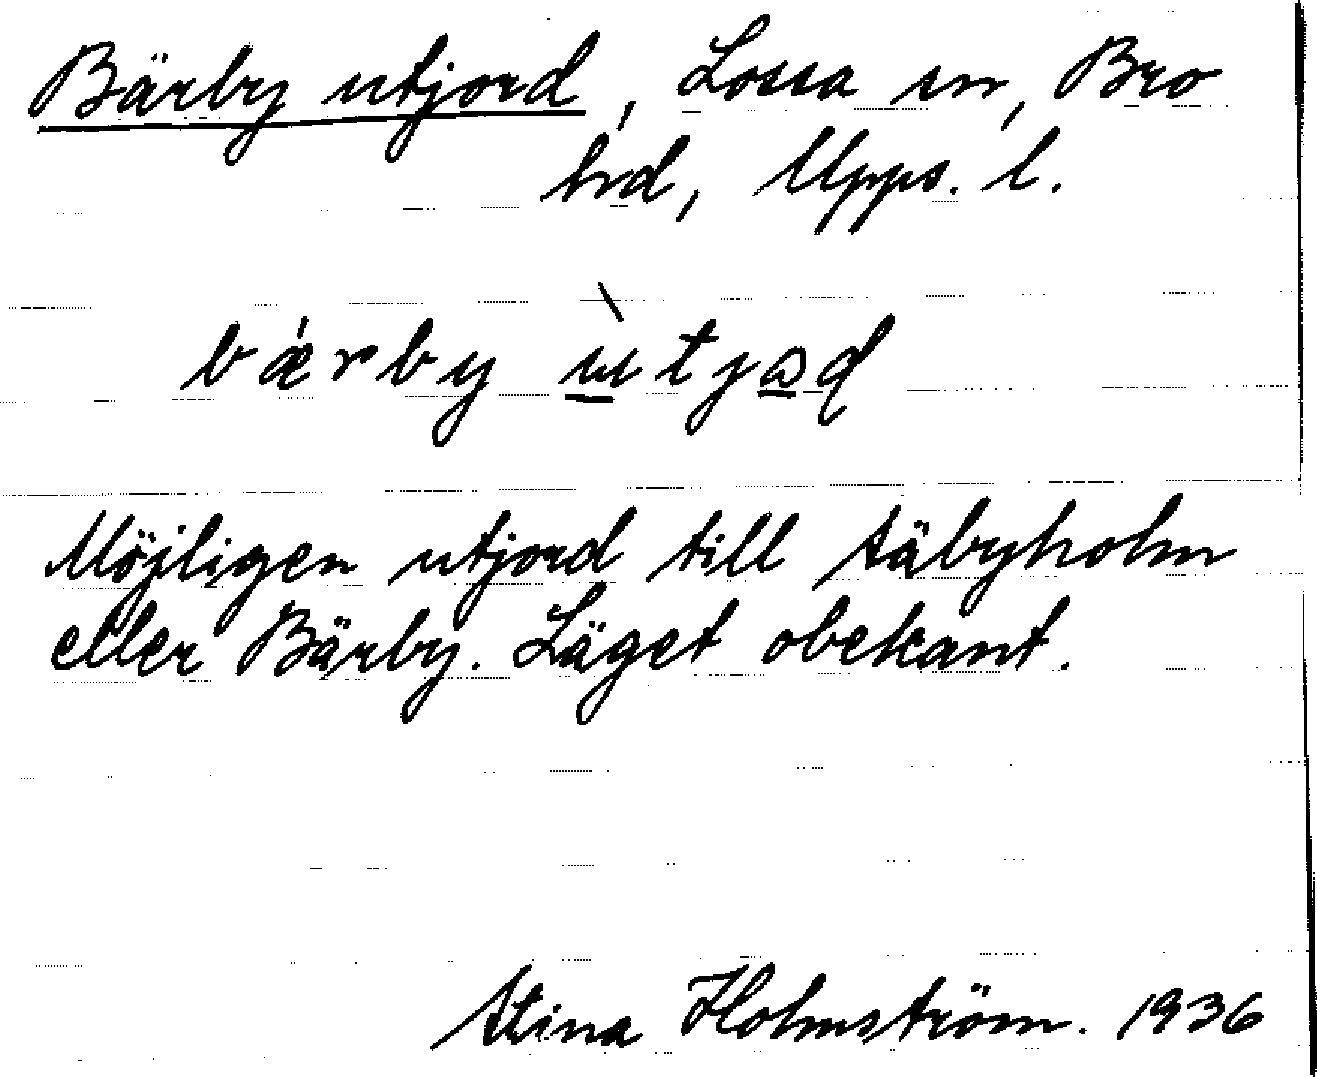 Bärby utjord, Lossa sn, Bro
hrd, Upps. l.
bǽrby ùtjaɖ
Möjligen utjord till Säbyholm
eller Bärby. Läget obekant.
Stina Holmström. 1936